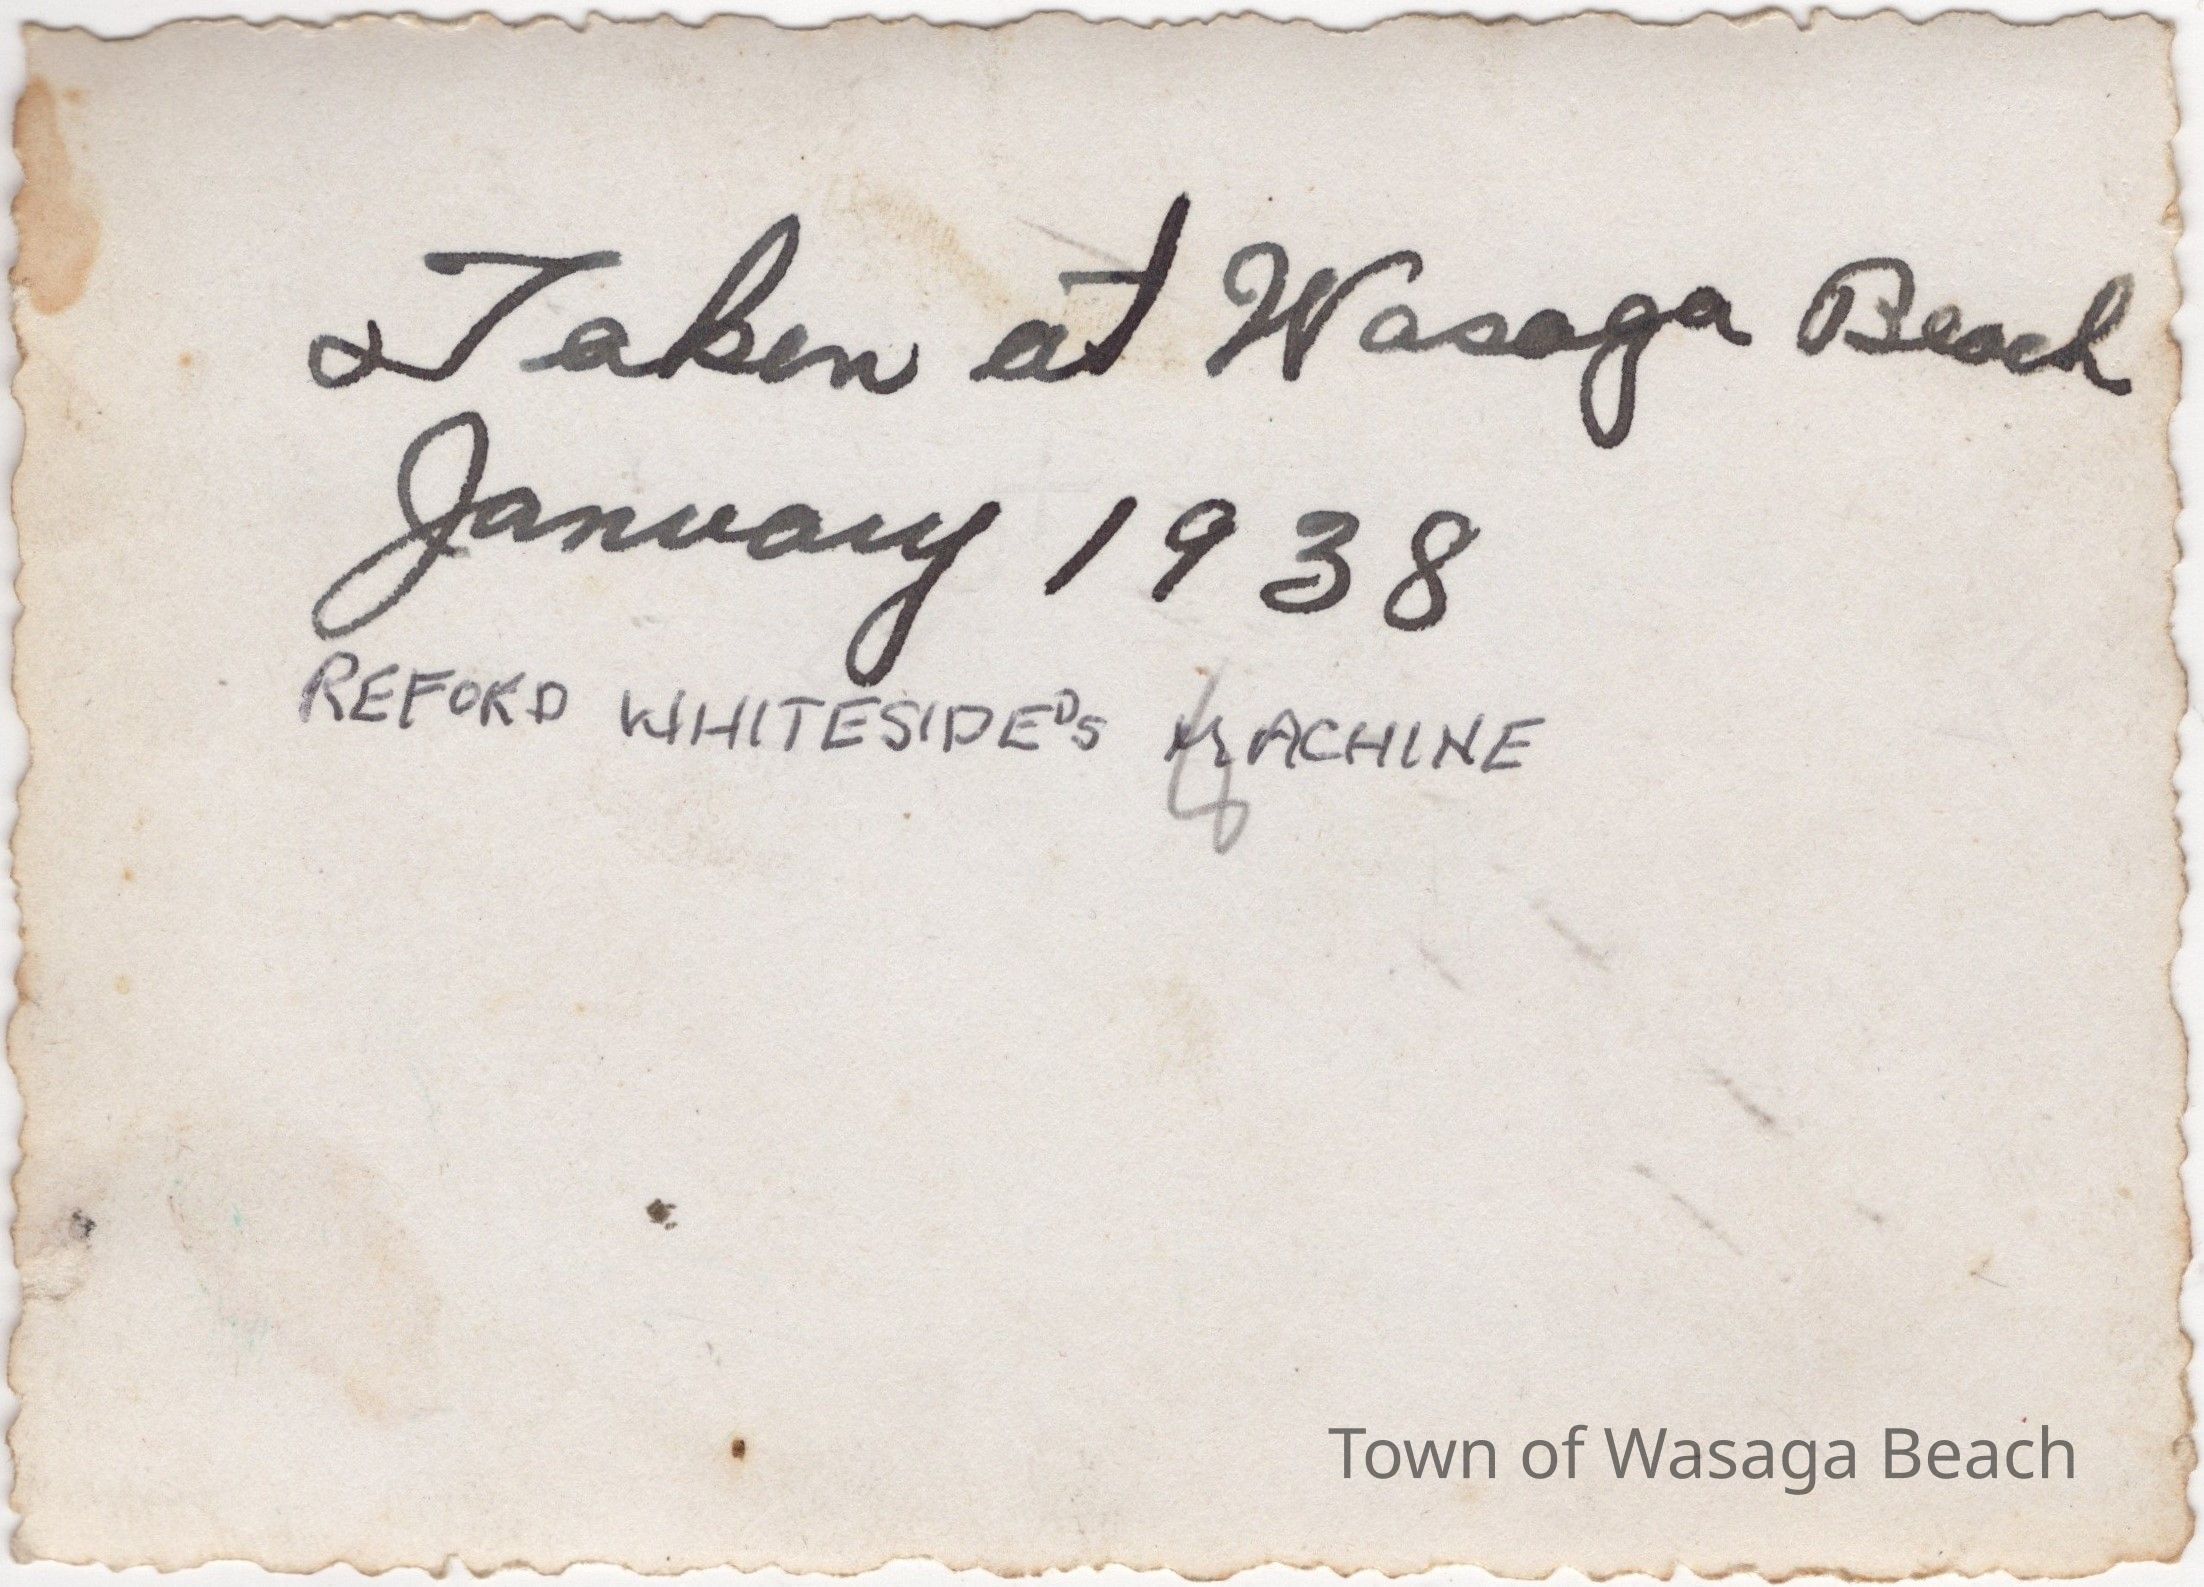 Taken at Wasaga Beach
January 1938
REFORD WHITESIDE'S MACHINE
Town of Wasaga Beach